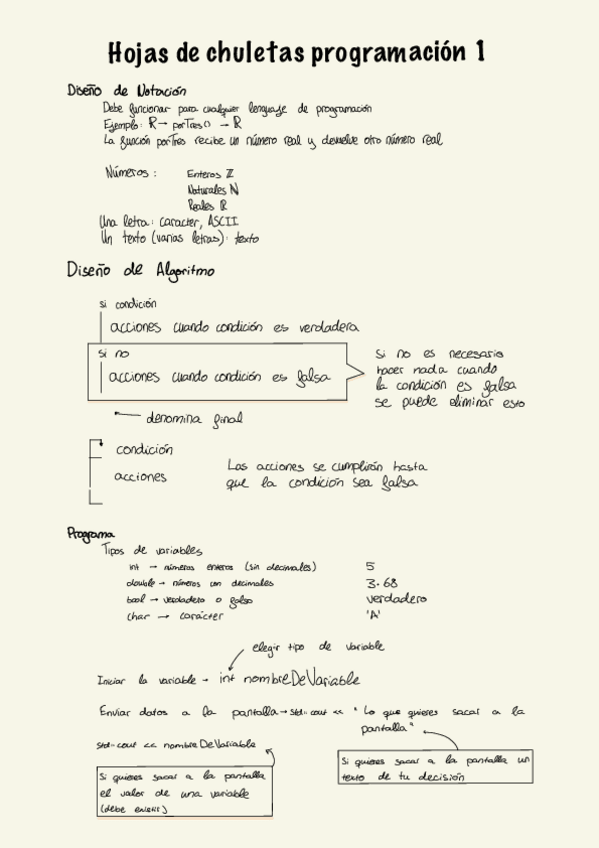 Hojas de chuletas programación 1
Diseño de Notación
Debe funcionar para cualquier lenguaje de programación
Ejemplo: R → porTres() → R
La función porTres recibe un número real y devuelve otro número real
Números: Enteros Z
Naturales N
Reales R
Una letra: caracter, ASCII
Un texto (varias letras): texto
Diseño de Algoritmo
si condición
acciones cuando condición es verdadera
si no
acciones cuando condición es falsa
Si no es necesario
hacer nada cuando
la condición es falsa
se puede eliminar esto
denomina final
condición
acciones
Las acciones se cumplirán hasta
que la condición sea falsa
Programa
Tipos de variables
int → números enteros (sin decimales) 5
double → números con decimales 3.68
bool → verdadero o falso verdadero
char → carácter 'A'
elegir tipo de variable
Iniciar la variable → int nombreDeVariable
Enviar datos a la pantalla → std::cout << "Lo que quieres sacar a la
pantalla"
std::cout << nombreDeVariable
Si quieres sacar a la pantalla
el valor de una variable
(debe existir)
Si quieres sacar a la pantalla un
texto de tu decisión